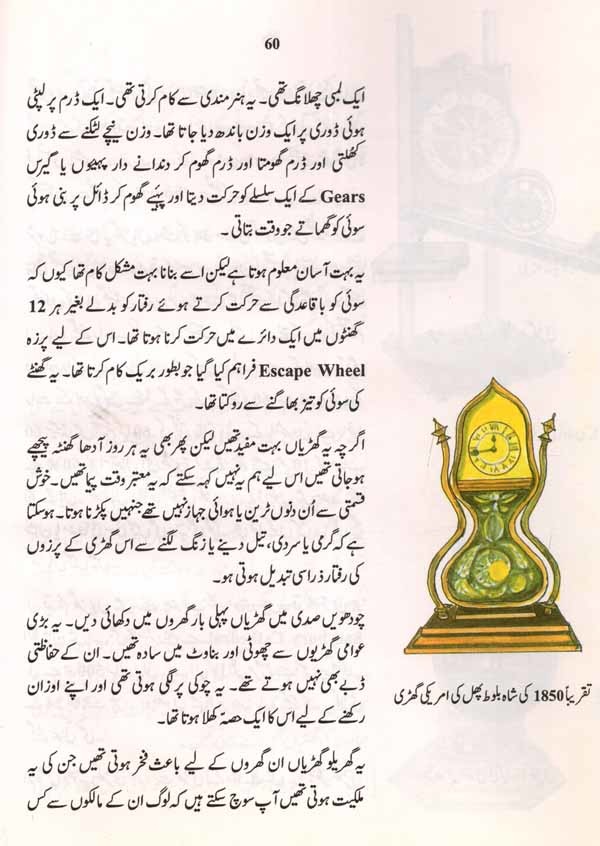 60
ایک لمبی چھلانگ تھی۔ یہ ہنر مندی سے کام کرتی تھی۔ ایک ڈرم پر لپٹی
ہوئی ڈوری پر ایک وزن باندھ دیا جاتا تھا۔ وزن نیچے لٹکنے سے ڈوری
کھُلتی اور ڈرم گھومتا اور ڈرم گھوم کر دندانے دار پہیوں یا گیرس
Gears کے ایک سلسلے کو حرکت دیتا اور پہیے گھوم کر ڈائل پر بنی ہوئی
سوئی کو گھماتے جو وقت بتاتی۔
یہ بہت آسان معلوم ہوتا ہے لیکن اسے بنانا بہت مشکل کام تھا کیوں کہ
سوئی کو باقاعدگی سے حرکت کرتے ہوئے رفتار کو بدلے بغیر ہر 12
گھنٹوں میں ایک دائرے میں حرکت کرنا ہوتا تھا۔ اس کے لیے پرزہ
Escape Wheel فراہم کیا گیا جو بطور بریک کام کرتا تھا۔ یہ گھنٹے
کی سوئی کو تیز بھاگنے سے روکتا تھا۔
اگرچہ یہ گھڑیاں بہت مفید تھیں لیکن پھر بھی یہ ہر روز آدھا گھنٹہ پیچھے
ہوجاتی تھیں اس لیے ہم یہ نہیں کہہ سکتے کہ یہ معتبر وقت پیما تھیں۔ خوش
قسمتی سے اُن دنوں ٹرین یا ہوائی جہاز نہیں تھے جنہیں پکڑنا ہوتا۔ ہوسکتا
ہے کہ گرمی یا سردی، تیل دینے یا زنگ لگنے سے اس گھڑی کے پرزوں
کی رفتار ذرا سی تبدیل ہوتی ہو۔
چودھویں صدی میں گھڑیاں پہلی بار گھروں میں دکھائی دیں۔ یہ بڑی
عوامی گھڑیوں سے چھوٹی اور بناوٹ میں سادہ تھیں۔ ان کے حفاظتی
ڈبے بھی نہیں ہوتے تھے۔ یہ چوکی پر لگی ہوتی تھی اور اپنے اوزان
رکھنے کے لیے اس کا ایک حصہ کھلا ہوتا تھا۔
یہ گھریلو گھڑیاں ان گھروں کے لیے باعث فخر ہوتی تھیں جن کی یہ
ملکیت ہوتی تھیں آپ سوچ سکتے ہیں کہ لوگ ان کے مالکوں سے کس
تقریباً 1850 کی شاہ بلوط پھل کی امریکی گھڑی